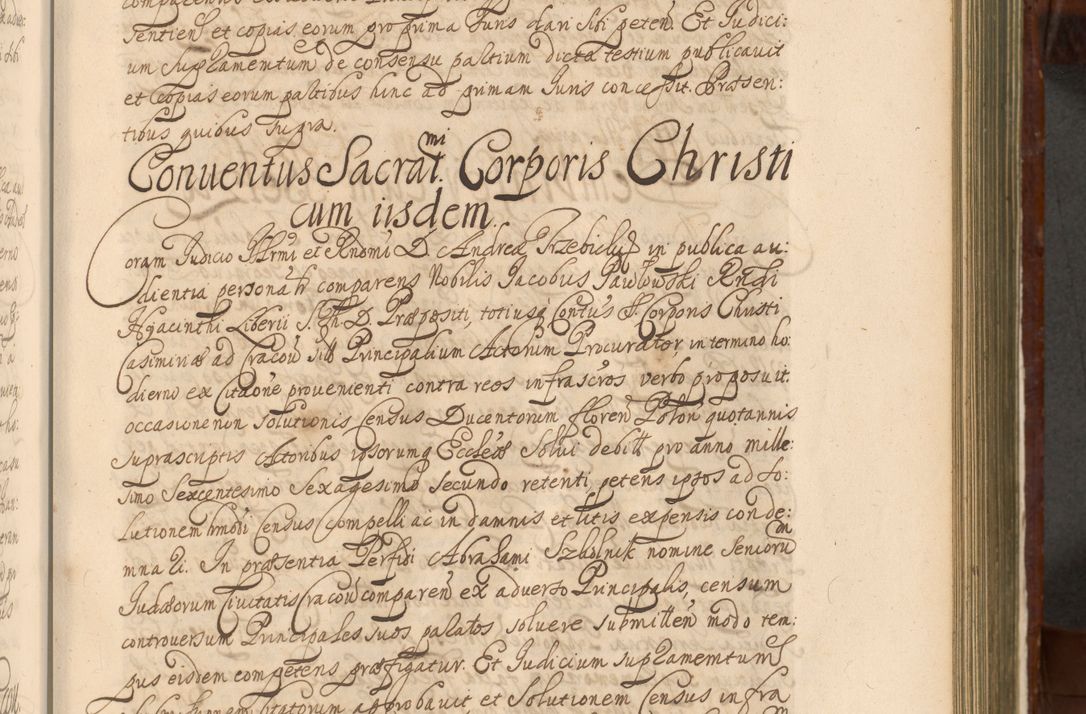 sentien et copias eorum pro prima Iuris dari sibi peten. Et Iudici:
um supLamemtum de consensu partium dicta testium publicauit
et copias eorum partibus hinc ad primam Iuris concessit. Praesen:
tibus quibus supra.
Conuentus Sacrat.mi Corporis Christi
cum iisdem.
Coram Iudicio Illrmi et Rndmi D. Andreae Trzebicky in publica au:
dientia personalr comparens Nobilis Jacobus Pawłowski Rndi
Hyacinthi Liberii S. Th. D. Praepositi, totiusq Contus S. Corporis Christi
Casimiriae ad Cracou sitti Principalium Actorum Procurator, in termino ho:
dierno ex Citaone provenienti contra reos infrascros verbo proposuit.
occasione non solutionis census Ducentorum floren Polon quotannis
suprascriptis Actoribus ipsorumq Eccleae solui debitt pro anno mille:
simo sexcentesimo sexagesimo secundo retenti, petens ipsos ad so:
lutionem hmodi census compelli ac in damnis et litis expensis conde:
mnari. In praesentia Perfidi Abrahami Szkolnik nomine seniorum
Iudaeorum Ciuitatis Cracou comparen ex aduerso Principalis, censum
controuersum Principales suos paratos soluere submitten modo tem:
pus eisdem competens praefigatur. Et Iudicium supLamemtum
approbauit et solutionem census infra